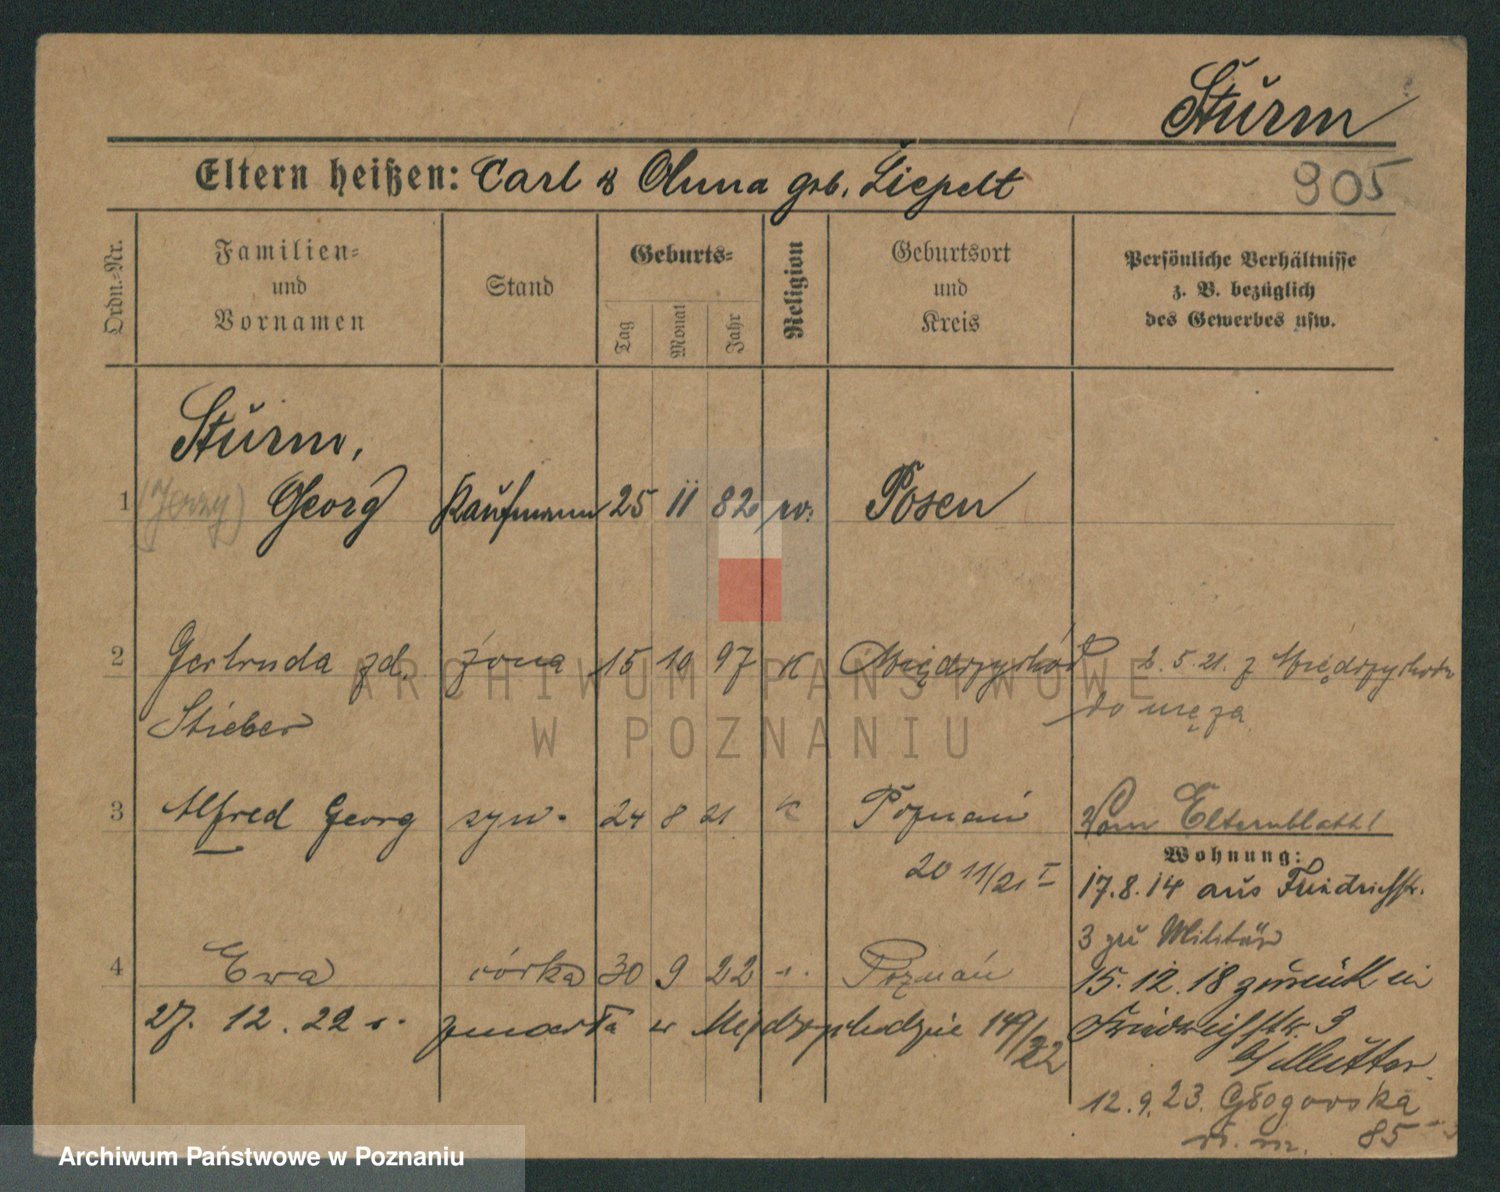 Sturm
Eltern heißen: Carl & Anna geb. Liepelt
905
Ordn.=Nr.
Familien=
und
Vornamen
Stand
Geburts=
Tag
Monat
Jahr
Religion
Geburtsort
und
Kreis
Persönliche Verhältnisse
z. B. bezüglich
des Gewerbes usw.
Sturm,
1 (Jerzy) Georg Kaufmann 25 11 82 ev. Posen
2 Gertruda zd. żona 15 10 97 K Międzychód 2.5.21. z Międzychodu
Stieber do męża
3 Alfred Georg syn. 24 8 21 K Poznań Vom Elternblatt!
20 11/21 I
Wohnung:
17.8.14 aus Friedrichstr.
3 zu Militär
4 Ewa córka 30 9 22 Poznań
15.12.18 zurück in
27. 12. 22 r. zmarła w Międzychodzie 149/22
Friedrichstr. 3
b/ Mutter.
12.9.23. Głogowska
85
ARCHIWUM PAŃSTWOWE
W POZNANIU
Archiwum Państwowe w Poznaniu